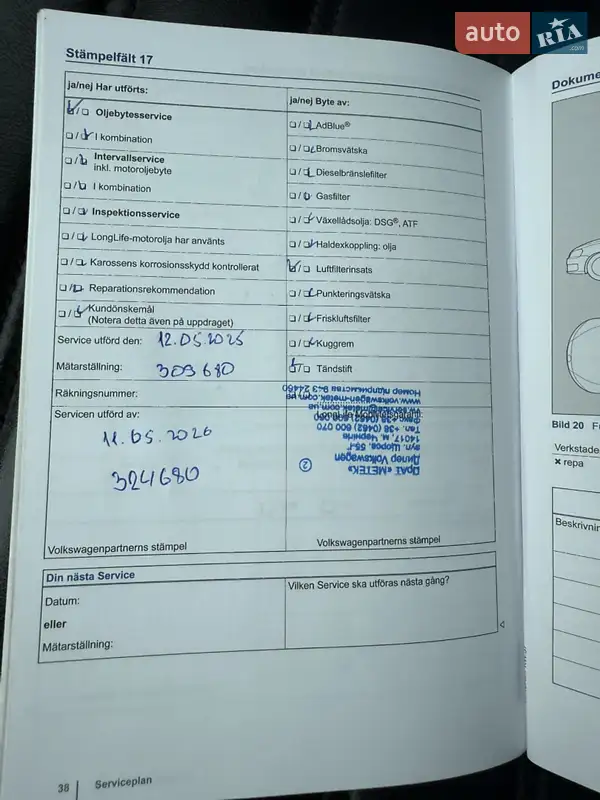 auto RIA .com
Stämpelfält 17
ja/nej Har utförts:
Oljebytesservice
I kombination
Intervallservice
inkl. motoroljebyte
I kombination
Inspektionsservice
LongLife-motorolja har använts
Karossens korrosionsskydd kontrollerat
Reparationsrekommendation
Kundönskemål
(Notera detta även på uppdraget)
Service utförd den: 12.05.2025
Mätarställning: 309680
Räkningsnummer:
Servicen utförd av:
11.05.2026
324680
Volkswagenpartnerns stämpel
ja/nej Byte av:
AdBlue®
Bromsvätska
Dieselbränslefilter
Gasfilter
Växellådsolja: DSG®, ATF
Haldexkoppling: olja
Luftfilterinsats
Punkteringsvätska
Friskluftsfilter
Kuggrem
Tändstift
ПрАТ «МЕТЕК»
Дилер Volkswagen
вул. Шорса, 55-Г
14017, м. Чернігів
Тел. +38 (0462) 600 070
www.volkswagen-metek.com.ua
2
Volkswagenpartnerns stämpel
Din nästa Service
Datum:
eller
Mätarställning:
Vilken Service ska utföras nästa gång?
38 Serviceplan
Dokume
Bild 20
Verkstade
× repa
Beskrivnin